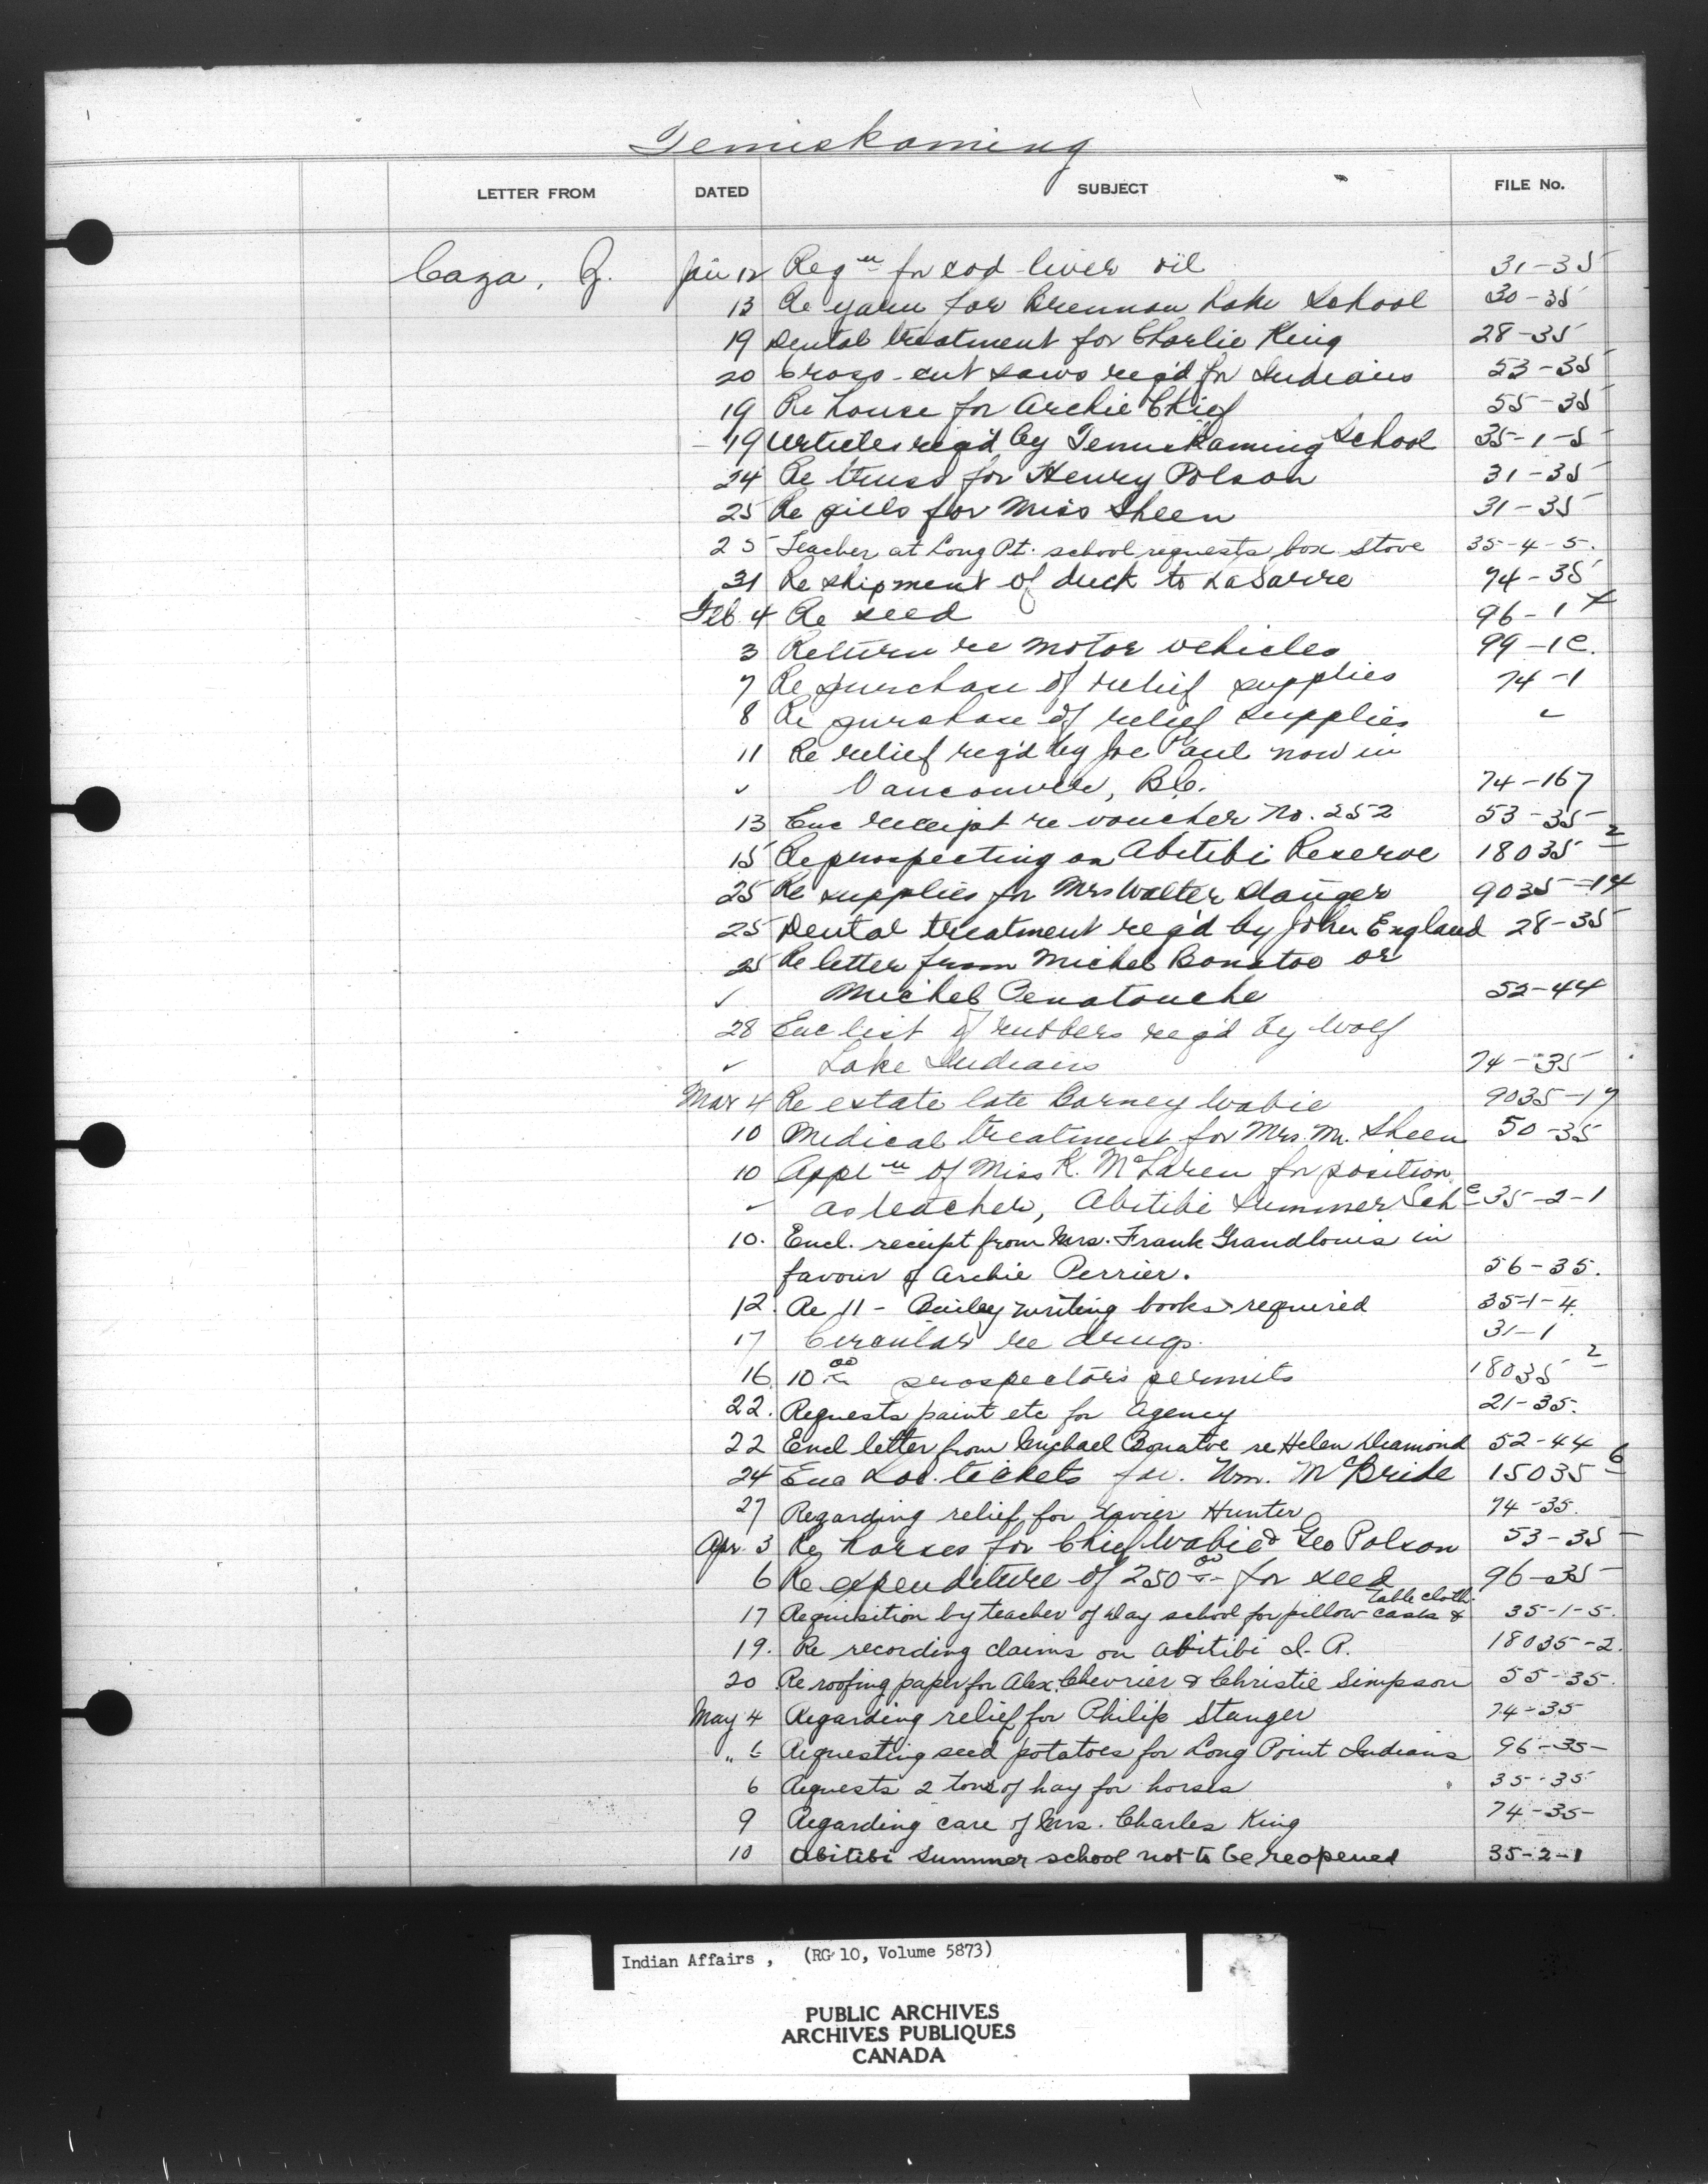 Temiskaming
LETTER FROM DATED SUBJECT FILE No.
Caza, Z. Jan 12 Reqn for cod liver oil 31-35
13 Re yarn for Brennan Lake School 30-35
19 Dental treatment for Charlie King 28-35
20 Cross-cut saws req'd for Indians 53-35
19 Re house for Archie Chief 55-35
19 Articles req'd by Temiskaming School 35-1-5
24 Re truss for Henry Polson 31-35
25 Re pills for Miss Sheen 31-35
25 Teacher at Long Pt. school requests box stove 35-4-5.
31 Re shipment of duck to LaSarre 74-35
Feb. 4 Re seed 96-1
3 Return re motor vehicles 99-1C.
7 Re purchase of relief supplies 74-1
8 Re purchase of relief supplies ✓
11 Re relief req'd by Joe Paul now in
✓ Vancouver, B.C. 74-167
13 Enc receipt re voucher No. 252 53-35
15 Re prospecting on Abitibi Reserve 18035-2
25 Re supplies for Mrs Walter Stanger 9035-14
25 Dental treatment req'd by John England 28-35
25 Re letter from Michel Bonatoo or
✓ Michel Penatouche 52-44
28 Enc list of rubbers req'd by Wolf
✓ Lake Indians 74-35
Mar 4 Re estate late Barney Wabie 9035-17
10 Medical treatment for Mrs. M. Sheen 50-35
10 Appln of Miss K. McLaren for position
✓ as teacher, Abitibi Summer Sch. 35-2-1
10. Encl. receipt from Mrs. Frank Grandlouis in
favour of Archie Perrier. 56-35.
12. Re 11- Bailey writing books required 35-1-4.
17 Circular re drugs. 31-1
16 10.00 prospectors permits 18035-2
22. Requests paint etc for Agency 21-35.
22 Encl letter from Michael Bonatoe re Helen Diamond 52-44
24 Enc Loc. tickets for. Wm. McBride 15035-6
27 Regarding relief for Xavier Hunter 74-35.
Apr. 3 Re horses for Chief Wabie & Geo Polson 53-35
6 Re expenditure of 250.00 for seed 96-35
17 Requisition by teacher of day school for pillow cases & table cloth. 35-1-5.
19. Re recording claims on Abitibi I.R. 18035-2.
20 Re roofing paper for Alex. Chevrier & Christie Simpson 55-35.
May 4 Regarding relief for Philip Stanger 74-35
" 6 Requesting seed potatoes for Long Point Indians 96-35-
6 Requests 2 tons of hay for horses " 35-35
9 Regarding care of Mrs. Charles King 74-35-
10 Abitibi summer school not to be reopened 35-2-1
Indian Affairs, (RG 10, Volume 5873)
PUBLIC ARCHIVES
ARCHIVES PUBLIQUES
CANADA